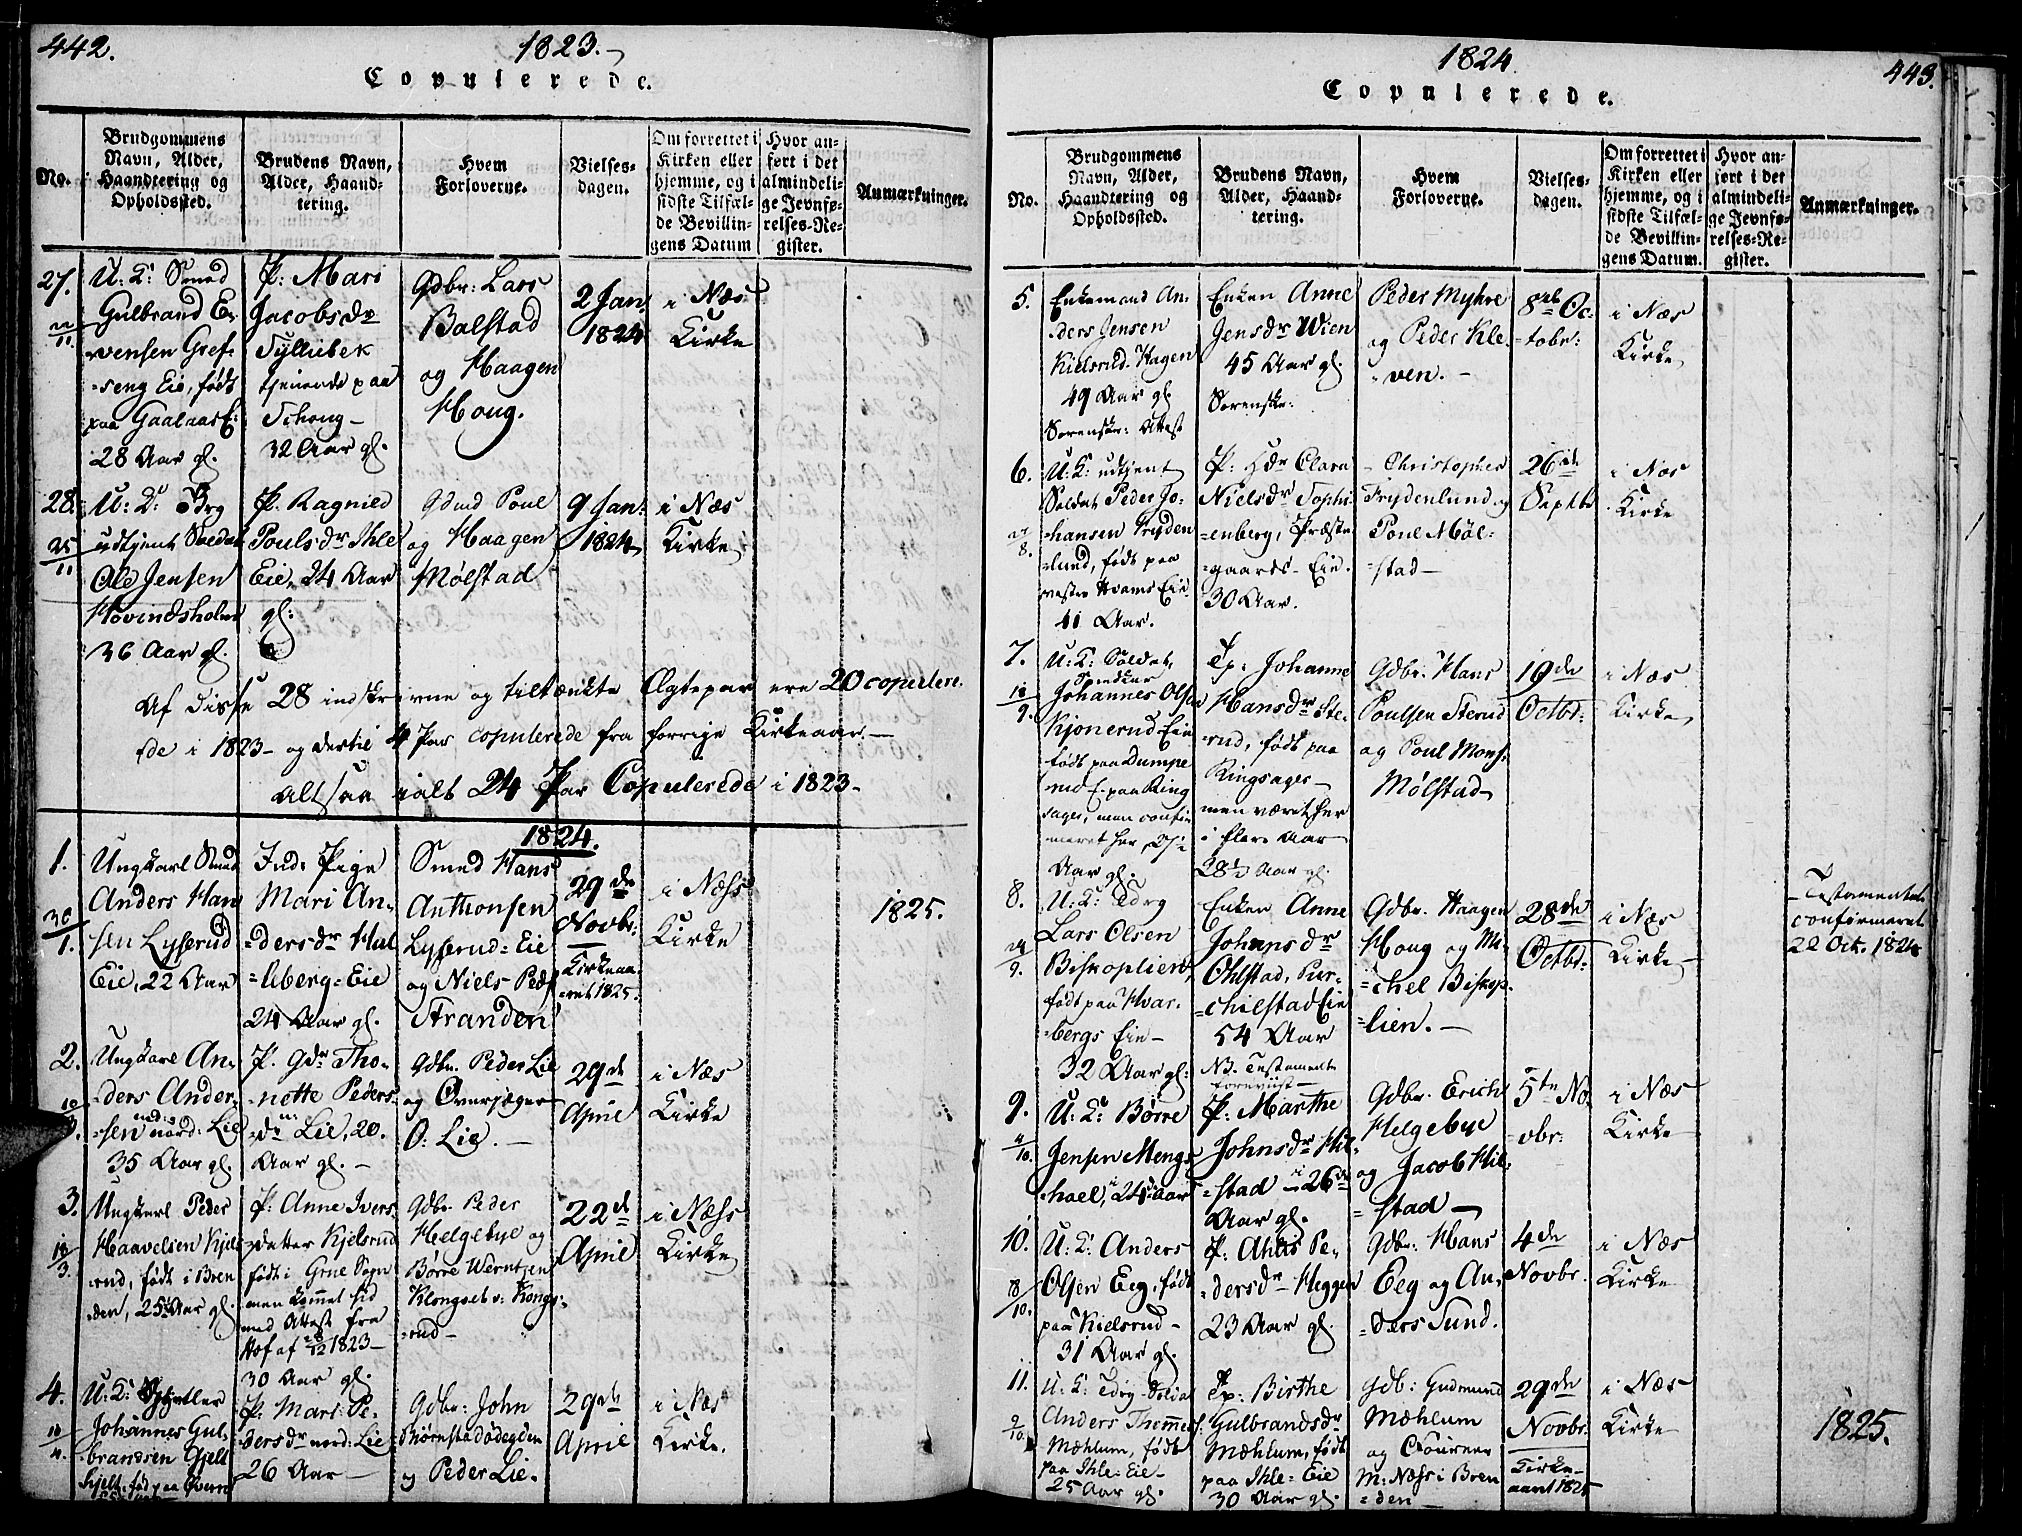 442.
1823.
Copulerede.
No.
Brudgommens
Navn, Alder,
Haandtering og
Opholdssted.
Brudens Navn,
Alder, Haand-
tering.
Hvem
Forloverne.
Vielses-
dagen.
Om forrettet i
Kirken eller
hjemme, og i
sidste Tilfæl-
de Bevillin-
gens Datum
Hvor an-
ført i det
almindeli-
ge Jevnfø-
relses-Re-
gister.
Anmærkninger.
27.
U: K: Smed
Gulbrand E-
vensen Gref-
seng Eie, født
paa Gaalaas E:
28 Aar gl.
P: Mari
Jacobsdr
Tyllibek
tjenende paa
Schoug
32 Aar gl.
Gdbr: Lars
Balstad
og Haagen
Houg.
2 Jan.
1824
i Næs
Kirke
28.
25/11
U: K:
udtjent Soldat
Ole Jensen
Hovindsholm
36 Aar gl.
P. Ragnild
Poulsdr Ihle
Eie, 24 Aar
gl:
Gdmd Poul
og Haagen
Mølstad
9 Jan:
1824
i Næs
Kirke
Af disse 28 indskrevne og tiltænkte Ægtepar ere 20 copulere-
de i 1823 og dertil 4 Par copulerede fra forrige Kirkeaar
Altsaa ialt 24 Par Copulerede i 1823
1824.
1.
30/1.
Ungkarl Smed
Anders Han-
sen Lyserud
Eie, 22 Aar
Ind: Pige
Mari An-
dersdr Hul
berg-Eie
24 Aar gl.
Smed Hans
Anthonsen
Lyserud-Eie
og Niels Peds
Stranden
29de
Novbr.
Kirkeaa-
ret 1825.
i Næss
Kirke
1825.
2.
Ungkarl An-
ders Ander-
sen nord: Lie
35 Aar gl.
P. Gdr Tho-
nette Peders-
dr Lie, 20
Aar gl.
Gdbr. Peder Lie
og Overjæger
O: Lie.
29de
April
i Næs
Kirke
3.
18/3.
Ungkarl Peder
Haavelsen Kjels
rud, født i Bren
den, 25 Aar gl.
P: Anne Ivers
datter Kjelsrud
født i Grue Sogn
men kommet hid
med Attest fra
Hof af 28/12 1823
30 Aar gl.
Gdbr: Peder
Helgebye og
Børre Werntsen
Klongset v: Kongs-
rud
22de
April
i Næss
Kirke
4.
U: K:
Johannes Gul-
brandsen Gjelt
P: Mari Pe-
dersdr nord: Lie
26 Aar
Gdbr: John
Biørnstadødegden
og Peder Lie.
29de
April
i Næs
Kirke.
1824
443.
Copulerede.
No.
Brudgommens
Navn, Alder,
Haandtering og
Opholdssted.
Brudens Navn,
Alder, Haand-
tering.
Hvem
Forloverne.
Vielses-
dagen.
Om forrettet i
Kirken eller
hjemme, og i
sidste Tilfæl-
de Bevillin-
gens Datum.
Hvor an-
ført i det
almindeli-
ge Jevnfø-
relses-Re-
gister.
Anmærkninger.
5.
Enkemand An-
ders Jensen
Kielsrud-Hagen
49 Aar gl.
Sorenskr: Attest
Enken Anne
Jensdr Wien
45 Aar gl.
Sorenskr:
Peder Myhre
og Peder Kle-
ven.
8de Oc-
tobr:
i Næs
Kirke
6.
U: K: udtjent
Soldat Peder Jo-
hansen Fryden
lund, født paa
vestre Hvams Eie
41 Aar.
P: Hdr Clara
Nielsdr Sophi-
enberg, Præste
gaards-Eie.
30 Aar.
Christopher
Frydenlund og
Poul Møl-
stad
26de
Septbr
i Næs
Kirke
7.
18/9.
U: K: Soldat
Johannes Olsen
Kjonerud Eie
født paa Dumpe
rud E. paa Ring
sager, men confir
meret her,
Aar gl.
Tp: Johanne
Hansdr Ste-
rud, født paa
Ringsager
men været her
i flere Aar
28½ Aar gl.
Gdbr. Hans
Poulsen Sterud
og Poul Mons:
Mølstad
19de
Octbr:
i Næs
Kirke
8.
24/9.
U: K:
Lars Olsen
Biskoplien,
født paa Hvar-
bergs Eie
32 Aar gl.
Enken Anne
Johansdr
Ohlstad, Pur-
chilstad Eie
54 Aar
NB. Testamente
foreviist
Gdbr. Haagen
Houg og Mi-
chel Biskop-
lien.
28de
Octbr:
i Næs
Kirke
Testamentet
confirmeret
22 Oct. 1824
9.
U: K: Børre
Jensen Mengs
hoel, 24de Aar
P: Marthe
Johnsdr Hil-
stad i 26de
Aar gl.
Gdbr. Erich
Helgebye
og Jacob Hil-
stad
5te No-
vbr:
i Næs
Kirke
10.
18/10.
U: K: Anders
Olsen Eeg, født
paa Kielsrud
31 Aar gl.
P: Ahlis Pe-
dersdr Heggen
23 Aar gl.
Gdbr: Hans
Eeg og An-
ders Sund.
4de
Novbr.
i Næs
Kirke
11.
9/10.
Anders Thomes:
Mæhlum, født
paa Ihle-Eie
25 Aar gl.
Tp: Birthe
Gulbrandsdr
Mæhlum, født
paa Ihle-Eie
30 Aar gl.
Gdb: Gudmund
Mæhlum
og
M: Næss i Bren
den
29de
Novbr.
Kirke-
aaret 1825
i Næs
Kirke
1825.